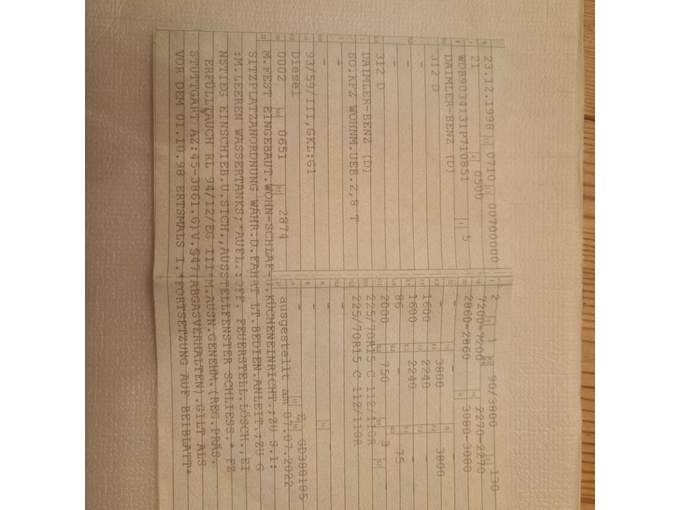 23.12.1998 0710 00700000
21 0500
WDB9034131P710851 5
DAIMLER-BENZ (D)
312 D
-
-
312 D
DAIMLER-BENZ (D)
SO.KFZ WOHNM.UEB.2,8 T
-
-
93/59/III,GKL:G1
Diesel
0002 0651 2874
2 1 90/3800 130
7200-7200 2270-2270
2860-2860 3080-3080
-
3800 3800
1600 2240
1600 2240
- -
86 75
2000 750 3
225/70R15 C 112/110R
225/70R15 C 112/110R
-
-
E GD380185
ausgestellt am 07.07.2022
M.FEST EINGEBAUT.WOHN-SCHLAF-U.KÜCHENEINRICHT.;ZU S.1:
SITZPLATZANORDNUNG WÄHR.D.FAHRT LT.BEDIEN.ANLEIT.;ZU G
:M.LEEREN WASSERTANKS;*AUFL.:OFF. FEUERSTELL.LÖSCH.,EI
NSTIEG EINSCHIEB.U.SICH.,AUSSTELLFENSTER SCHLIESS.* FZ
ERFÜLLTAUCH RL 94/12/EG III*M.AUSN.GENEHM.(REG.PRÄS.
STUTTGART AZ:45-3861.6)V.§47(ABGASVERHALTEN).GILT ALS
VOR DEM 01.10.98 ERTSMALS I.*FORTSETZUNG AUF BEIBLATT*